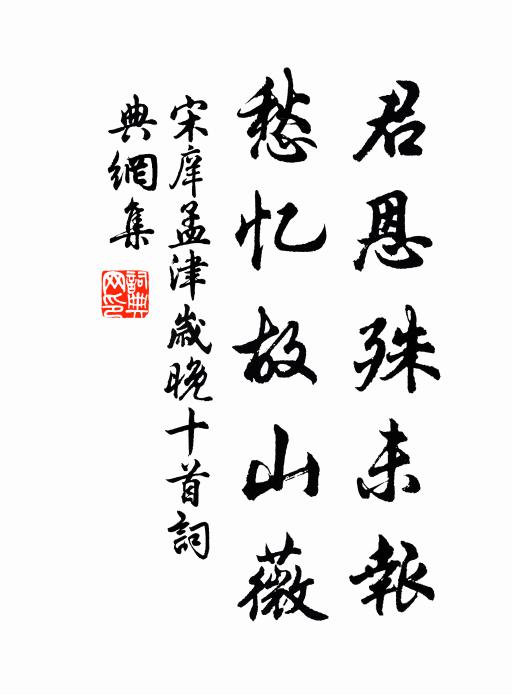 君恩殊未報
愁忆故山薇
宋庠孟津歲晚十首詞
典網集
詞典網印